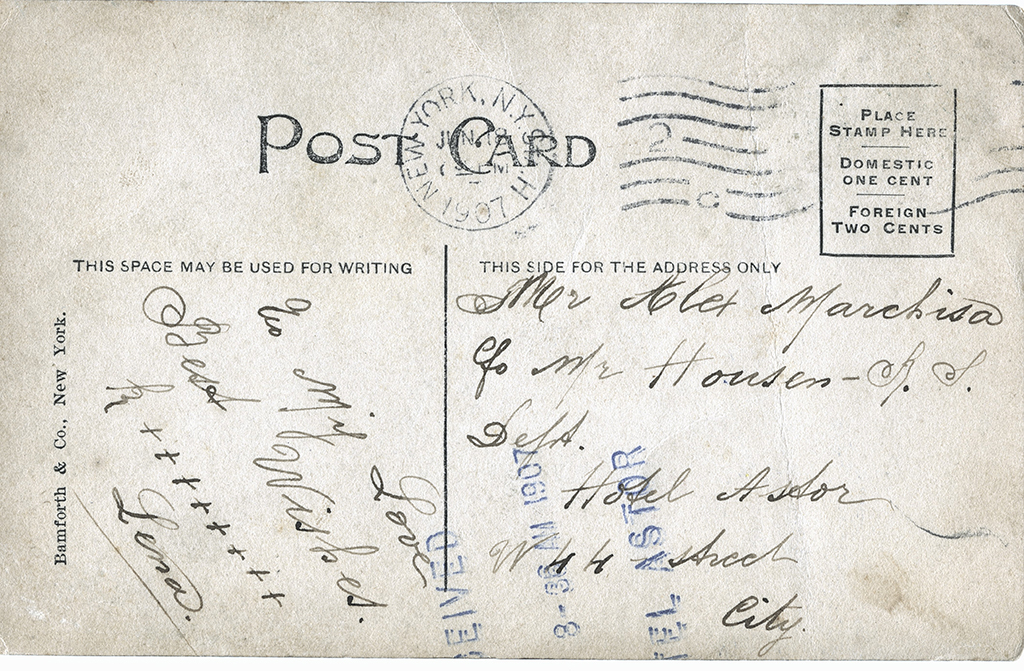 POST CARD
NEW YORK, N.Y.
JUN 18
M
1907
H
2
C
PLACE
STAMP HERE
DOMESTIC
ONE CENT
FOREIGN
TWO CENTS
THIS SPACE MAY BE USED FOR WRITING
THIS SIDE FOR THE ADDRESS ONLY
Bamforth & Co., New York.
To My Love
Best Wishes.
+ + + + + + + +
Lena.
Mr Alex Marchisa
c/o Mr Housen - S.
Dept.
Hotel Astor
W 44 street
City.
EIVED
8- AM 1907
TEL ASTOR